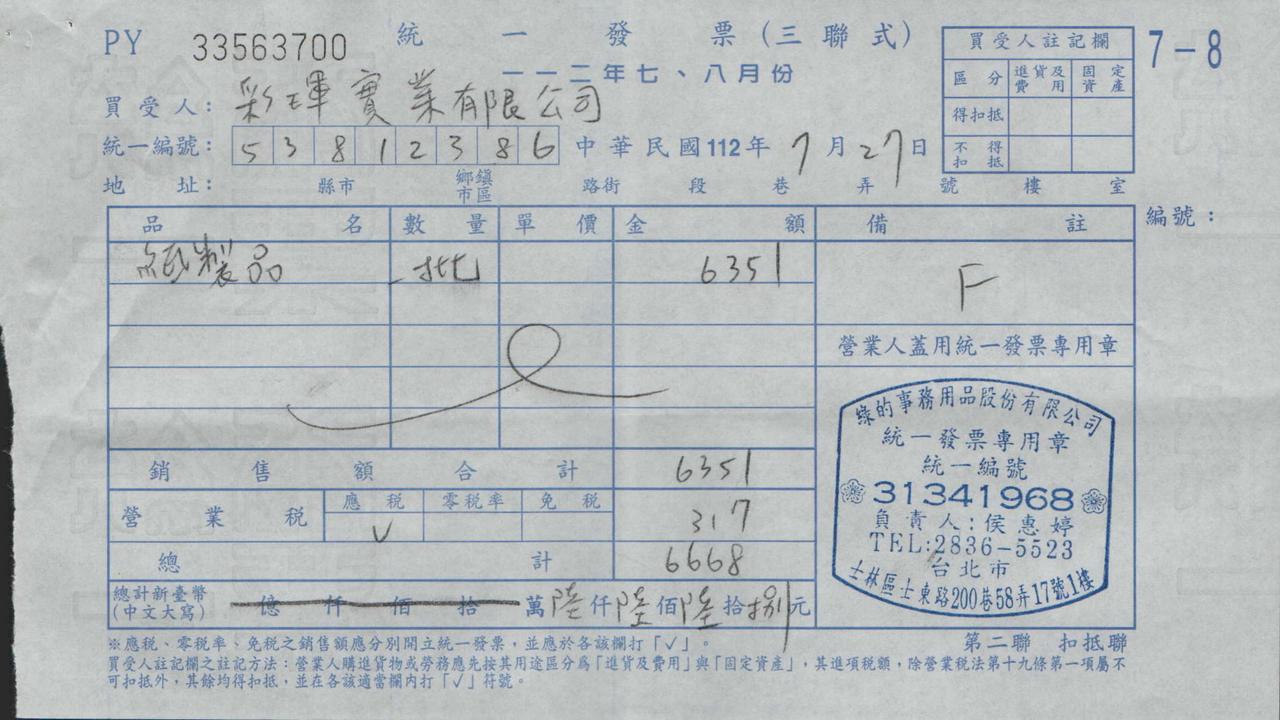 PY 33563700 統一發票(三聯式) 7-8
一一二年七、八月份
買受人: 彩琿實業有限公司
統一編號: 53812386 中華民國112年7月27日
地址: 縣市 鄉鎮市區 路街 段 巷 弄 號 樓 室
買受人註記欄
區分 進貨及費用 固定資產
得扣抵
不得扣抵
編號:
品名 數量 單價 金額 備註
紙製品 一批 6351 F
營業人蓋用統一發票專用章
銷售額合計 6351
營業稅 應稅 零稅率 免稅 317
V
總計 6668
總計新臺幣(中文大寫) 億仟佰拾萬陸仟陸佰陸拾捌元
綠的事務用品股份有限公司
統一發票專用章
統一編號
31341968
負責人:侯惠婷
TEL:2836-5523
台北市
士林區士東路200巷58弄17號1樓
※應稅、零稅率、免稅之銷售額應分別開立統一發票,並應於各該欄打「✓」。
第二聯 扣抵聯
買受人註記欄之註記方法:營業人購進貨物或勞務應先按其用途區分為「進貨及費用」與「固定資產」,其進項稅額,除營業稅法第十九條第一項屬不
可扣抵外,其餘均得扣抵,並在各該適當欄內打「✓」符號。